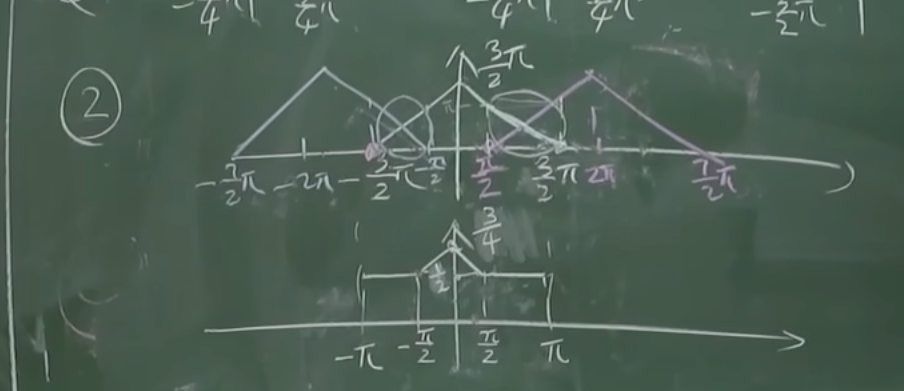 -3/4π 3/4π -3/4π 3/4π -3/2π
②
3/2π
π
-7/2π -2π -3/2π -π/2 π/2 3/2π 2π 7/2π
3/4
1/2
-π -π/2 π/2 π